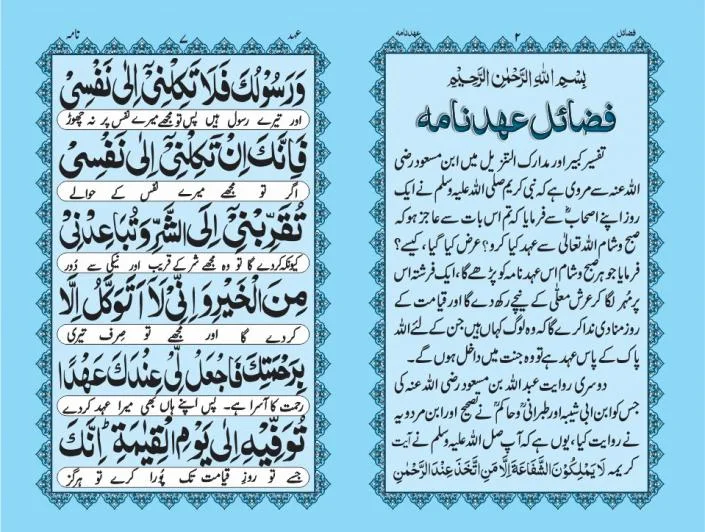 فضائل
۲
عہدنامہ
بِسْمِ اللهِ الرَّحْمٰنِ الرَّحِيْمِ
فضائل عہد نامہ
تفسیر کبیر اور مدارک التنزیل میں ابن مسعود رضی
اللہ عنہ سے مروی ہے کہ نبی کریم صلی اللہ علیہ وسلم نے ایک
روز اپنے اصحابؓ سے فرمایا کہ تم اس بات سے عاجز ہو کہ
صبح و شام اللہ تعالیٰ سے عہد کیا کرو؟ عرض کیا گیا، کیسے؟
فرمایا جو ہر صبح و شام اس عہد نامہ کو پڑھے گا، ایک فرشتہ اس
پر مُہر لگا کر عرش معلّٰی کے نیچے رکھ دے گا اور قیامت کے
روز منادی ندا کرے گا کہ وہ لوگ کہاں ہیں جن کے لئے اللہ
پاک کے پاس عہد ہے تو وہ جنت میں داخل ہوں گے۔
دوسری روایت عبد اللہ بن مسعود رضی اللہ عنہ کی
جس کو ابن ابی شیبہ اور طبرانیؒ و حاکمؒ نے تصحیح اور ابن مردویہ
نے روایت کیا، یوں ہے کہ آپ صل اللہ علیہ وسلم نے آیت
کریمہ لَا يَمْلِكُوْنَ الشَّفَاعَةَ اِلَّا مَنِ اتَّخَذَ عِنْدَ الرَّحْمٰنِ
عہد
۷
نامہ
وَرَسُوْلُكَ فَلَا تَكِلْنِيْٓ اِلٰى نَفْسِيْ
اور تیرے رسول ہیں پس تو مجھے میرے نفس پر نہ چھوڑ
فَاِنَّكَ اِنْ تَكِلْنِيْٓ اِلٰى نَفْسِيْ
اگر تو مجھے میرے نفس کے حوالے
تُقَرِّبْنِيْٓ اِلَى الشَّرِّ وَتُبَاعِدْنِيْ
کیونکہ کردے گا تو وہ مجھے شر کے قریب اور نیکی سے دُور
مِنَ الْخَيْرِ وَاِنِّيْ لَآ اَتَوَكَّلُ اِلَّا
کر دے گا اور مجھے تو صرف تیری
بِرَحْمَتِكَ فَاجْعَلْ لِّيْ عِنْدَكَ عَهْدًا
رحمت کا آسرا ہے۔ پس اپنے ہاں بھی میرا عہد کردے
تُوَفِّيْهِ اِلٰى يَوْمِ الْقِيٰمَةِ ؕ اِنَّكَ
جسے تو روزِ قیامت تک پُورا کرے تو ہرگز